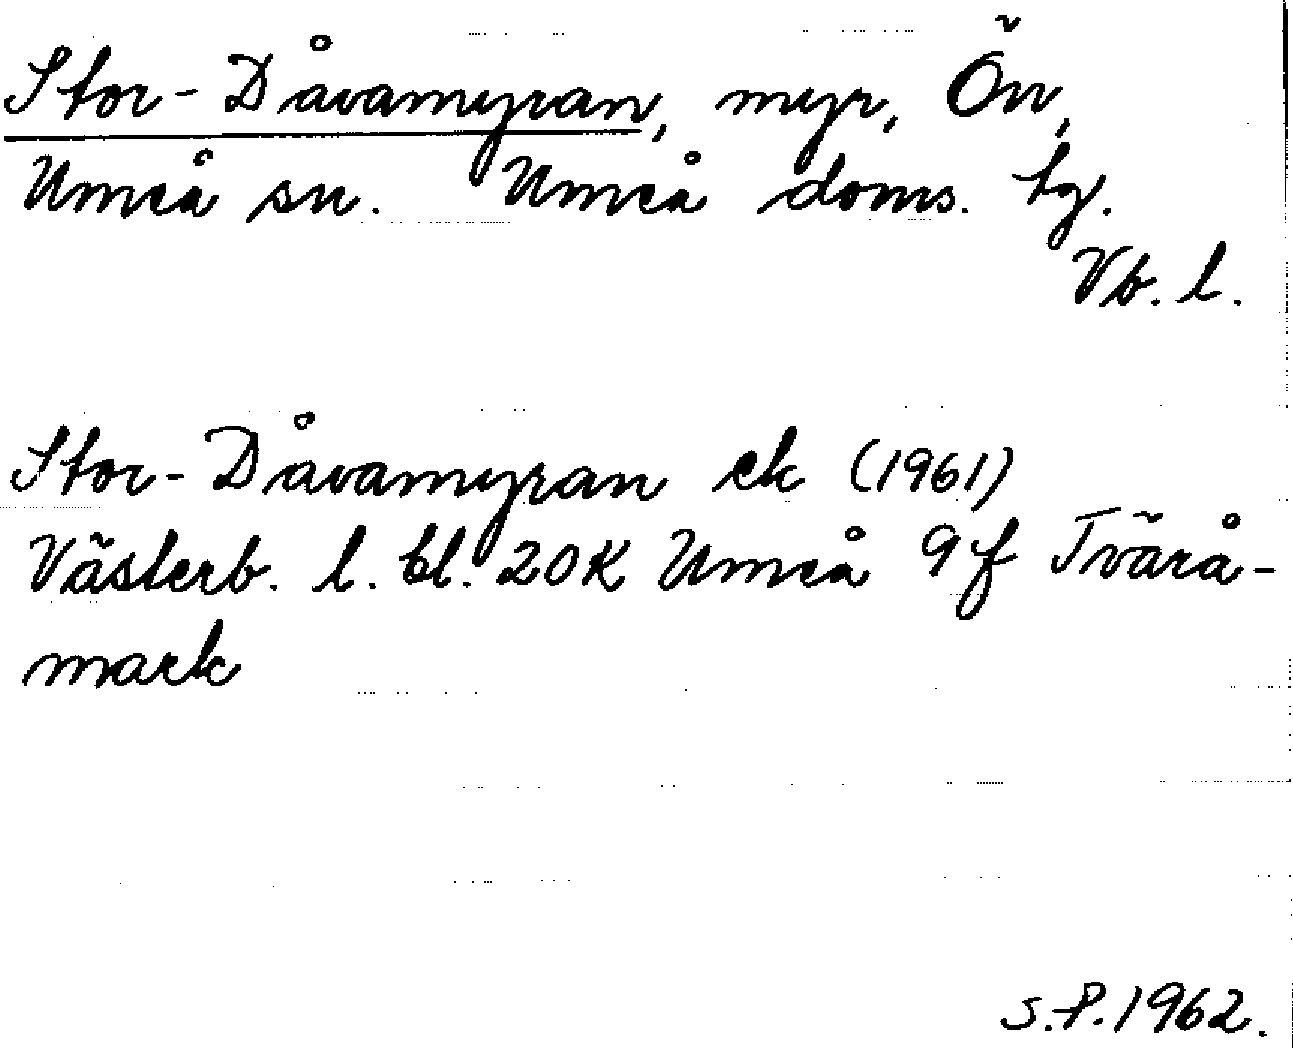 Stor-Dåvamyran, myr, Ön,
Umeå sn. Umeå doms. tg.
Vb. l.
Stor-Dåvamyran ek (1961)
Västerb. l. bl. 20K Umeå 9f Tvärå-
mark
S.P. 1962.